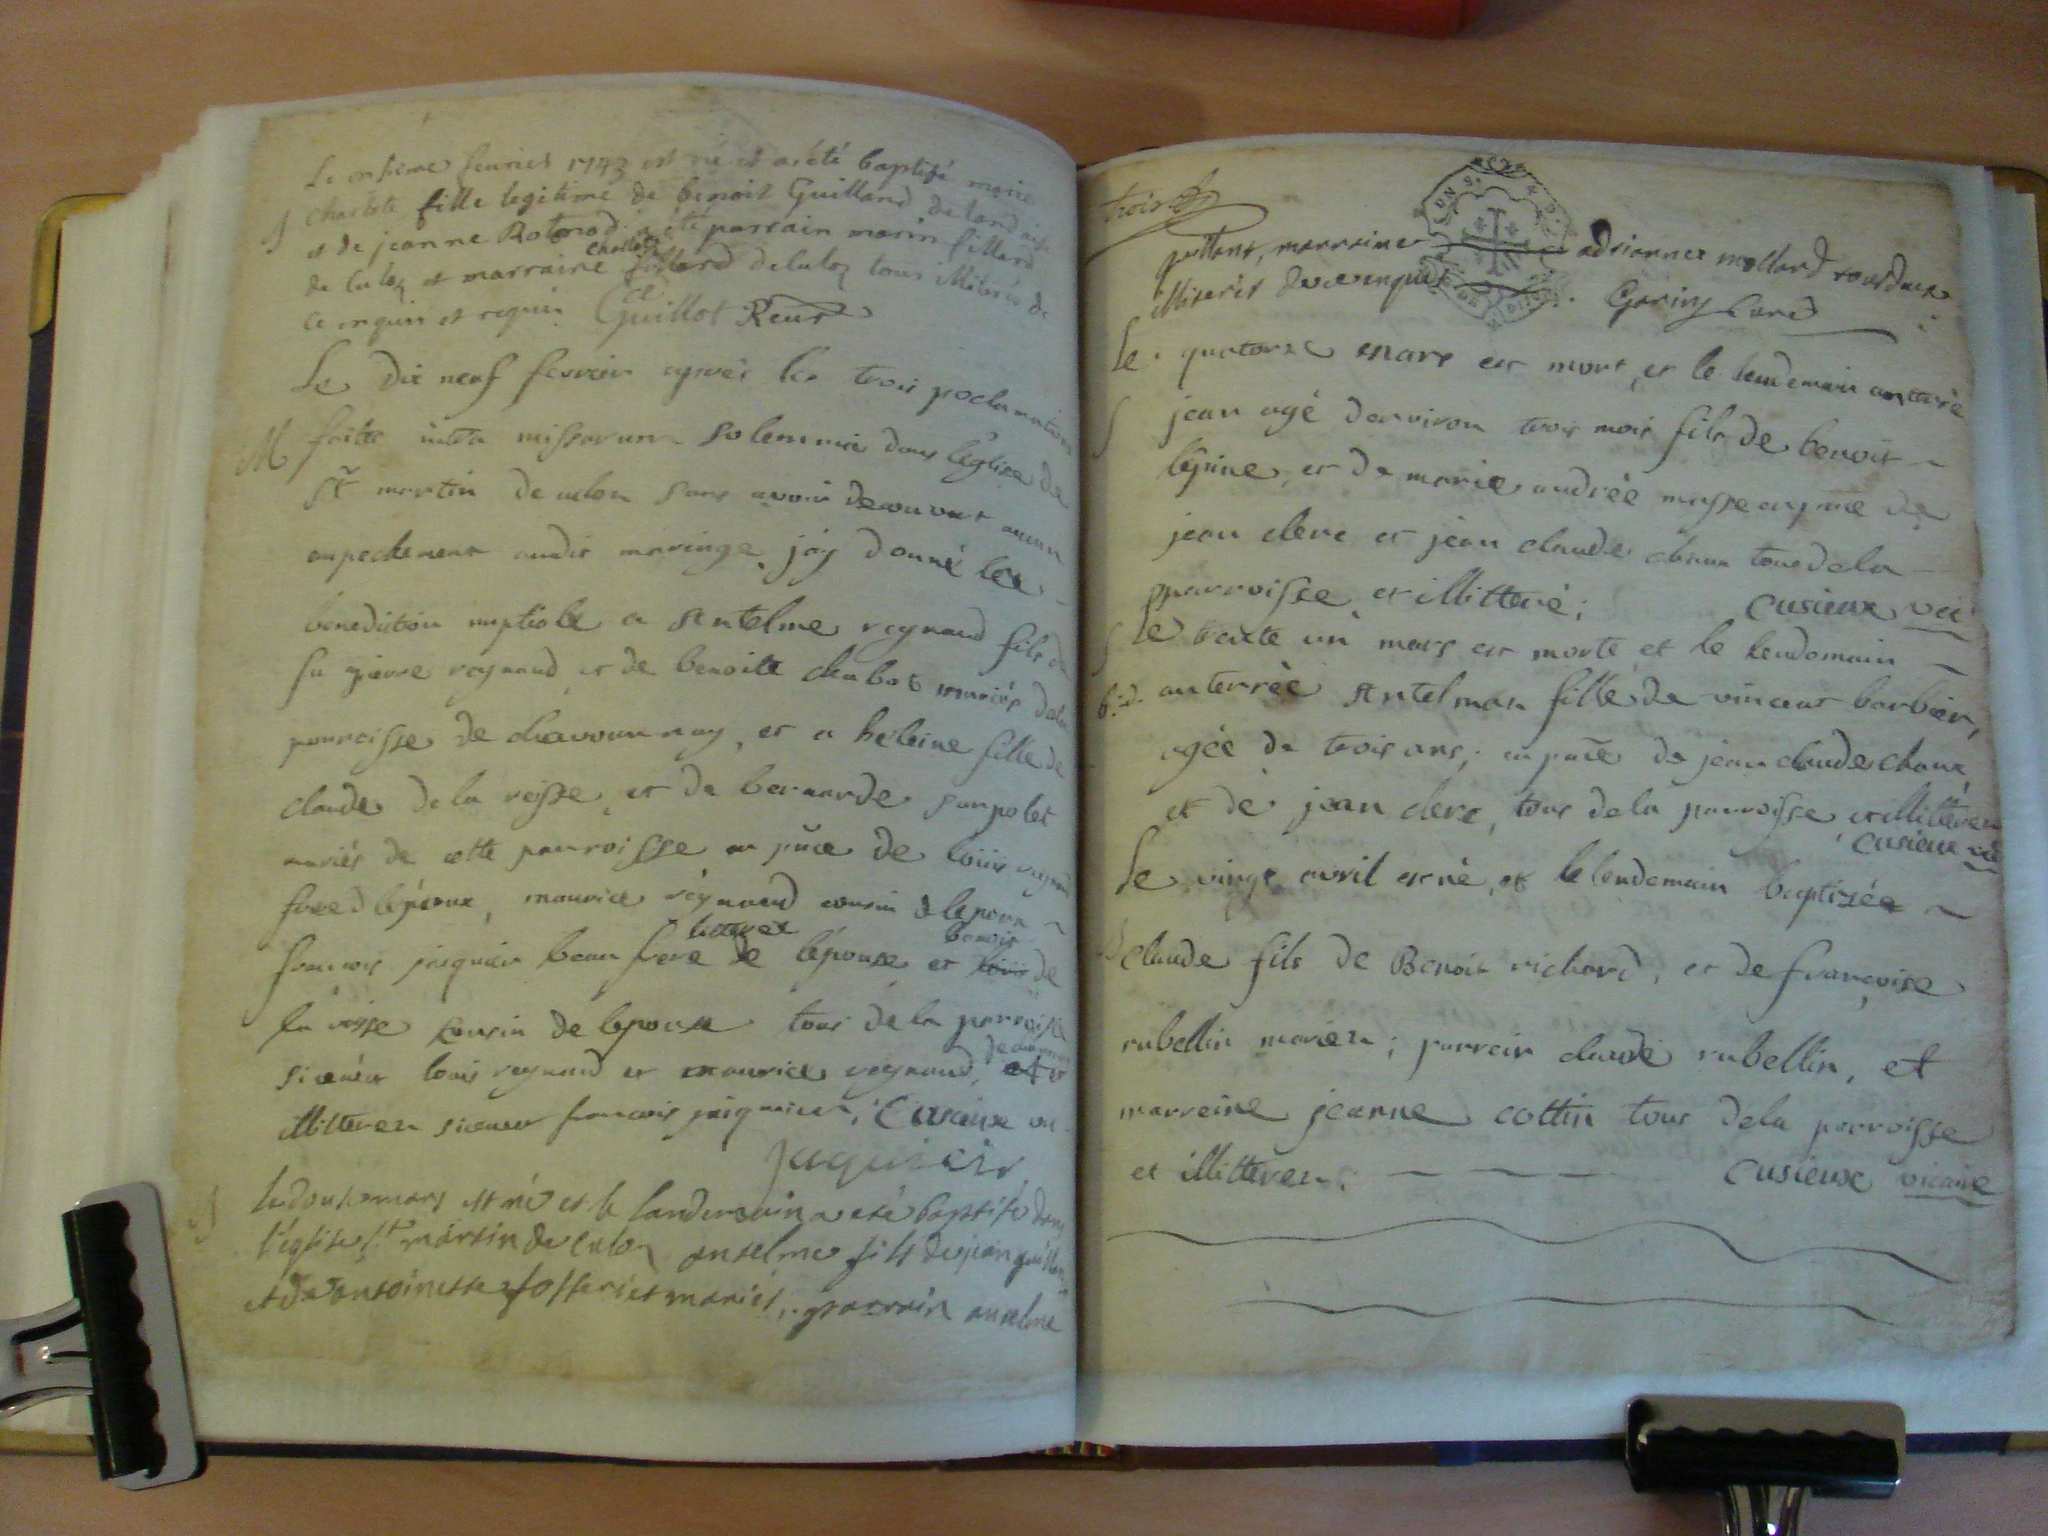 Le onsieme fevrier 1743 est né et a été baptisé marie
charlote fille legitime de benoit Guilland de
et de jeanne a été parrain marin fillard
de culoz et marraine charlote fillard deculoz tous illiterés de
ce enquis et requis Guillot
Le dix neuf fevrier apres les trois proclamations
M faite intra missarum solemnia dans l'eglise de
St martin de culou sans avoir decouvert aucun
empechement audit mariage, j'ay donné la
benediction nuptiale a Antelme reynaud fils de
fu pierre reynaud et de benoite chabot mariés dela
parroisse de chavournay, et a heleine fille de
claude de la veisse, et de bernarde
mariés de cette parroisse en pñce de loüis reynaud
frere d lépoux, maurice réynaud cousin d lepoux
francois jaiquier beau frere de lépouse, et benoit de
la veisse cousin de lepouse tous de la parroisse
si ce n'est louis reynaud et maurice reynaud,
illitteren si ce n'est francois jaiquier, Cusieux vic
jaquier
le douse mars est né et le landemain a eté baptisé dans
l'eglise St martin de culoz anselme fils de jean
et de antoinette mariés, parrain anselme
trois
marraine adrianne mollard tous deux
illiterés de ce enquis. Garin Curé
Le quatorze mars est mort, et le lendemain anterré
S jean agé denviron trois mois fils de benoit
lépine, et de marie andrée masse en pñce de
jean clerc et jean claude chaux tous de la
parroisse, et illitteré; cusieux vic
S Le trente un mars est morte, et le lendemain
anterrée Antelman fille de vincent barbier,
agée de trois ans, en pñce de jean claude chaux,
et de jean clerc, tous de la parroisse, et illitteren
cusieux vic
Le vingt avril est né, et le lendemain baptizée
claude fils de Benoit richard, et de françoise
rubellin marien; parrain claude rubellin, et
marreine jeanne cottin tous dela parroisse
et illitteren; cusieux vicaire